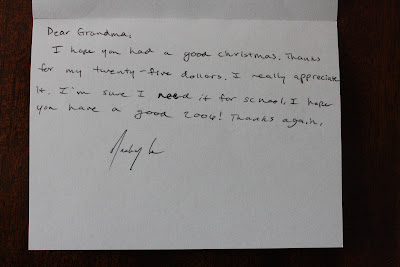 Dear Grandma,
I hope you had a good christmas. Thanks
for my twenty-five dollars. I really appreciate
it. I'm sure I need it for school. I hope
you have a good 2006! Thanks again,